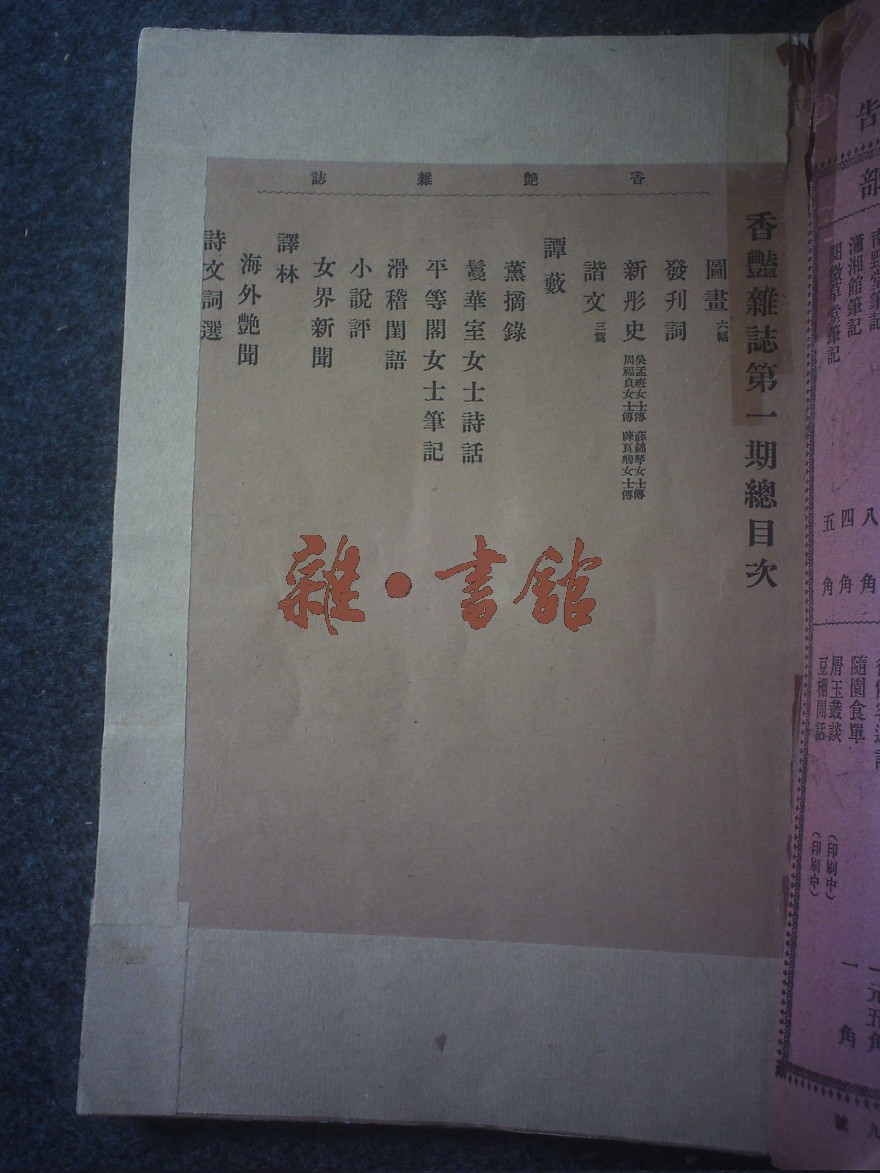 香艷雜誌
香豔雜誌第一期總目次
圖畫 六幅
發刊詞
新彤史 吳孟班女士傳 薛錦琴女士傳
周福貞女士傳
諧文 三篇
譚藪
薰摘錄
鬘華室女士詩話
平等閣女士筆記
滑稽閨語
小說評
女界新聞
譯林
海外艷聞
詩文詞選
雜·書館
告
部
瀟湘館筆記
閱微草堂筆記
八角
四角
五角
隨園食單
屑玉叢談
豆棚閒話
(印刷中)
(印刷中)
一元五角
一角
九號